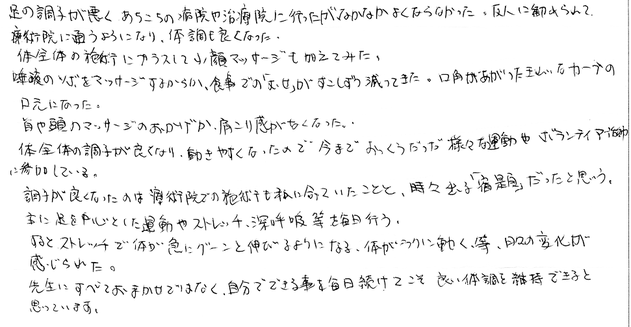 足の調子が悪く あちこちの病院や治療院に行ったがなかなかよくならなかった。友人に勧められて
療術院に通うようになり、体調も良くなった。
体全体の施術にプラスして小顔マッサージも加えてみた。
唾液のツボをマッサージするからか、食事での「むせ」がすこしずつ減ってきた。口角があがった
口元になった。
首や頭のマッサージのおかげか、肩こり感がなくなった。
体全体の調子が良くなり、動きやすくなったので 今まで おっくうだった 様々な運動や ボランティア活動
に参加している。
調子が良くなったのは 療術院での施術も私に合っていたことと、時々出る「宿題」だったと思う。
主に足を中心とした運動やストレッチ、深呼吸 等を毎日行う。
するとストレッチで体が急にグーンと伸びるようになる、体がらくに動く、等、日々の変化が
感じられた。
先生にすべておまかせではなく、自分でできる事を毎日続けてこそ 良い体調を維持できると
思っています。